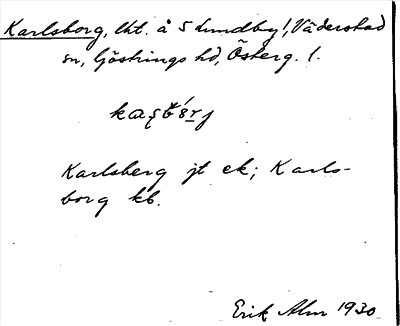 Karlsborg, lht. å S Lundby!, Väderstad
sn, Göstrings hd, Österg. l.
Karlsberg jt ek; Karls-
borg kb.
Erik Alm 1930